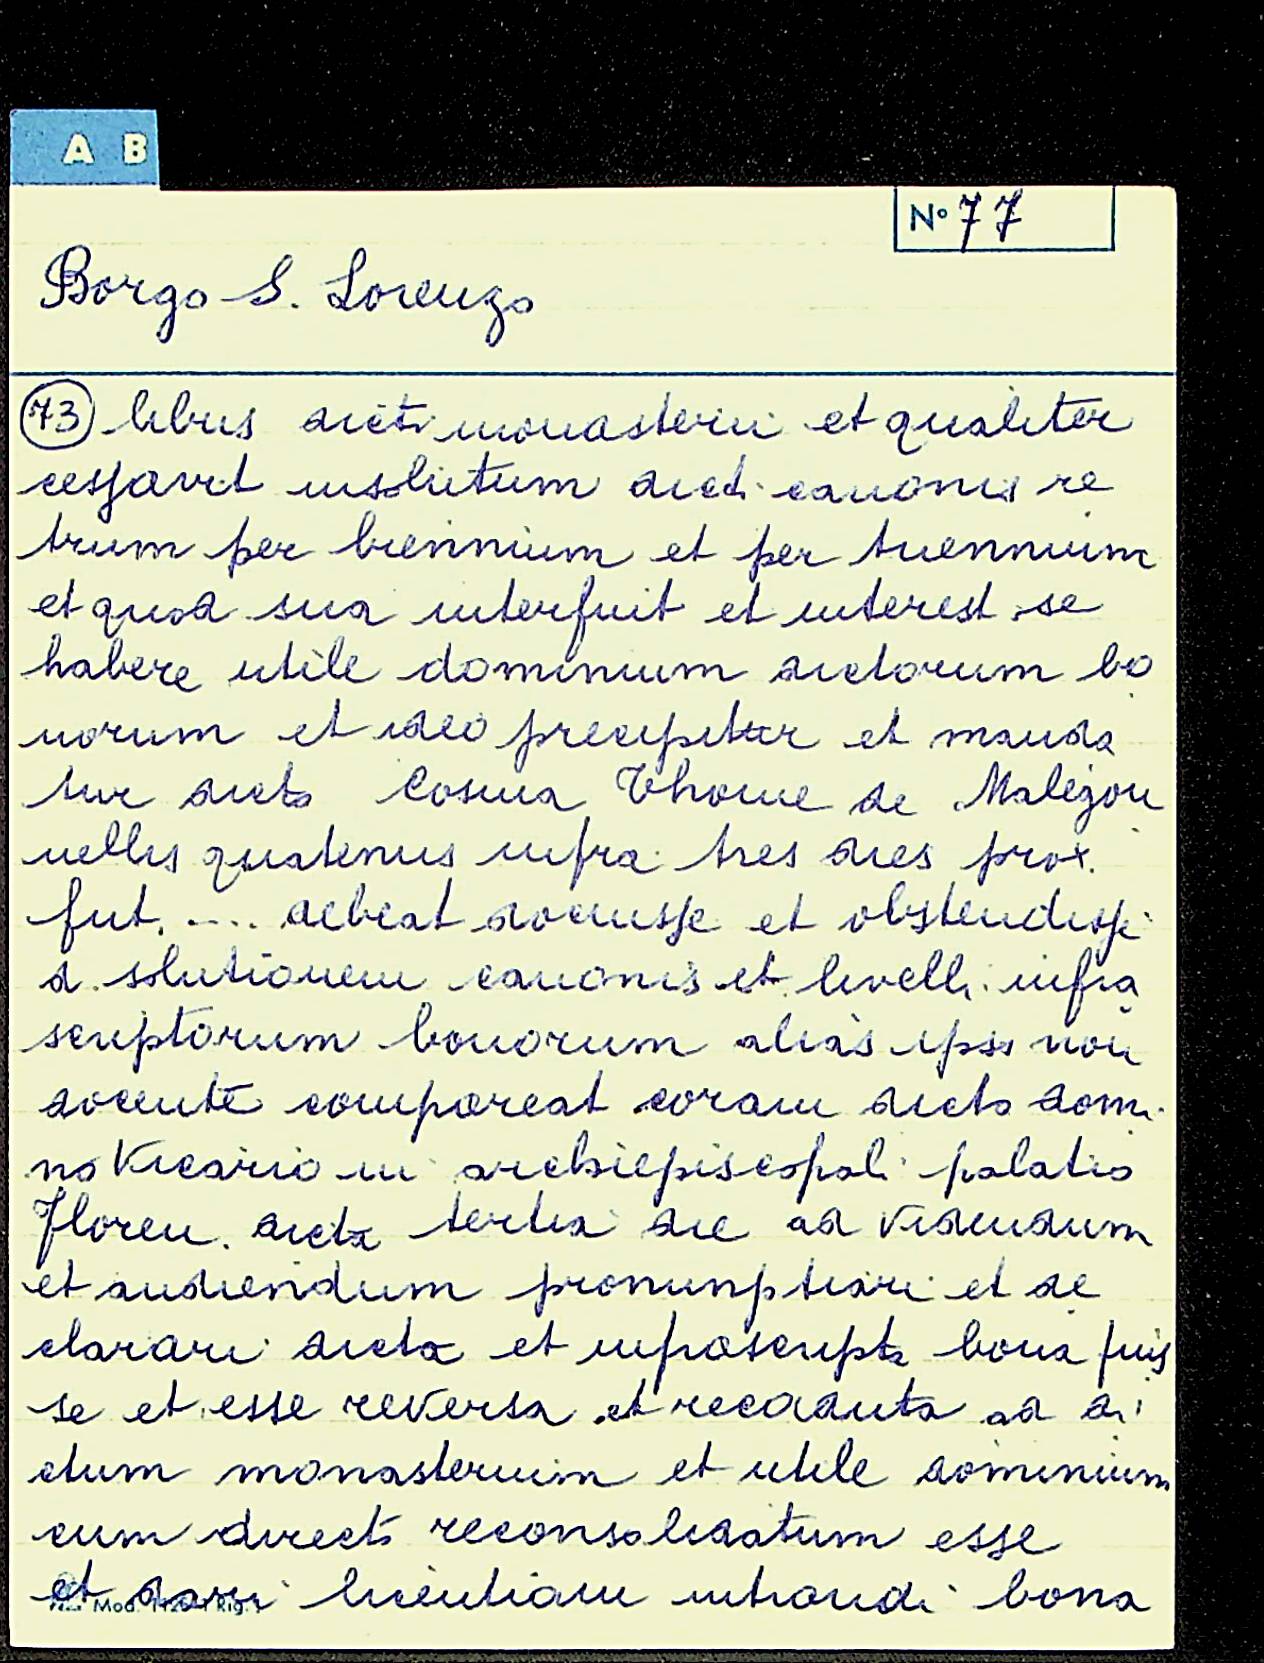 A B
N° 77
Borgo S. Lorenzo
73 libus dicti monasterii et qualiter
cessavit insolutum dicti canonis re
trum per biennium et per triennium
et quod sua interfuit et interest se
habere utile dominium dictorum bo
norum et ideo precipitur et manda
tur dicto Cosma Thome de Malegon
nellis quatenus infra tres dies prox.
fut. .... debeat docuisse et obstendisse
d. solutionem canonis et livelli infra
scriptorum bonorum alias ipso non
docente compareat coram dicto domi
no Vicario in archiepiscopali palatio
Floren. dicta tertia die ad videndum
et audiendum pronunptiari et de
clarari dicta et infrascripta bona fuis
se et esse reversa et recaduta ad di
ctum monasterium et utile dominium
cum directo reconsolidatum esse
et dari licentiam intrandi bona